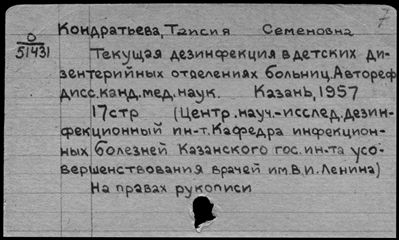 7
Кондратьева, Таисия Семеновна
О
51431
Текущая дезинфекция в детских ди-
зентерийных отделениях больниц. Автореф
дисс. канд. мед. наук. Казань, 1957
17стр (Центр. науч.-исслед. дезин-
фекционный ин-т. Кафедра инфекцион-
ных болезней Казанского гос. ин-та усо-
вершенствования врачей им. В.И. Ленина)
На правах рукописи